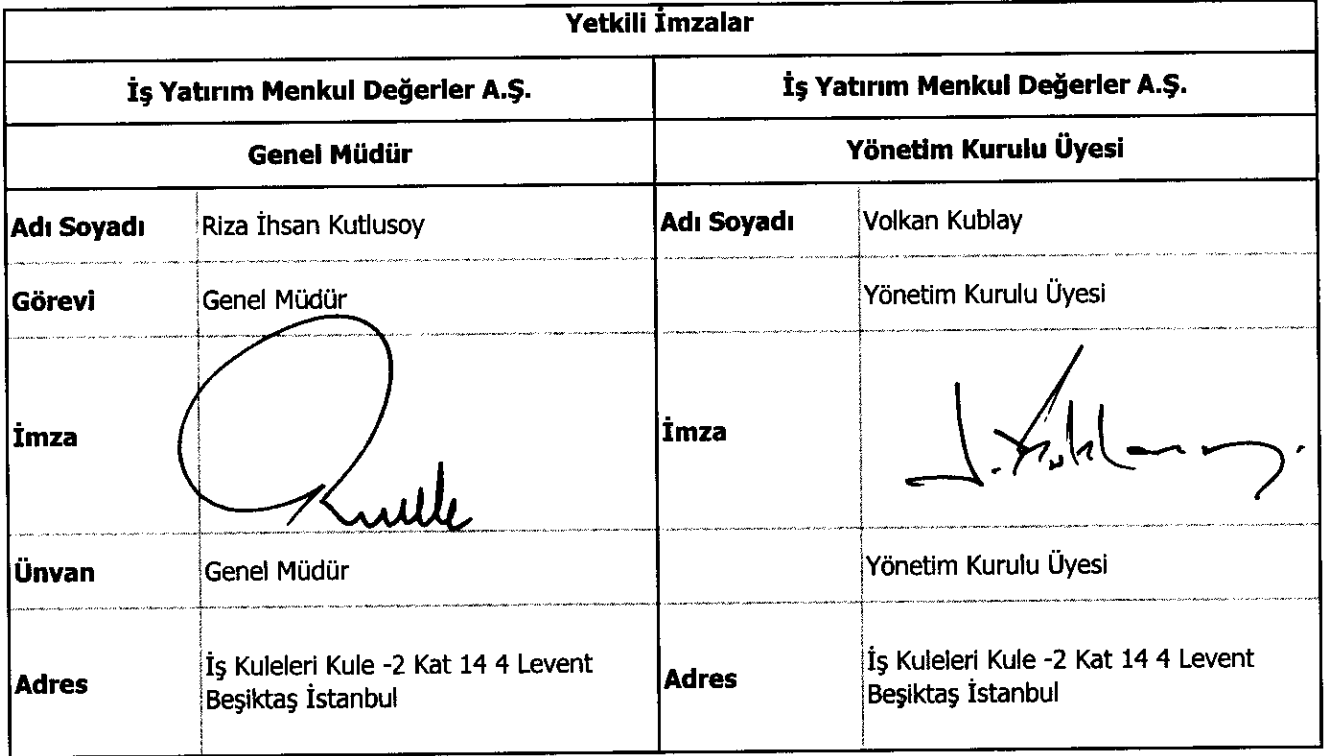 Yetkili İmzalar
İş Yatırım Menkul Değerler A.Ş.
İş Yatırım Menkul Değerler A.Ş.
Genel Müdür
Yönetim Kurulu Üyesi
Adı Soyadı
Riza İhsan Kutlusoy
Adı Soyadı
Volkan Kublay
Görevi
Genel Müdür
Yönetim Kurulu Üyesi
İmza
İmza
Ünvan
Genel Müdür
Yönetim Kurulu Üyesi
Adres
İş Kuleleri Kule -2 Kat 14 4 Levent
Beşiktaş İstanbul
Adres
İş Kuleleri Kule -2 Kat 14 4 Levent
Beşiktaş İstanbul